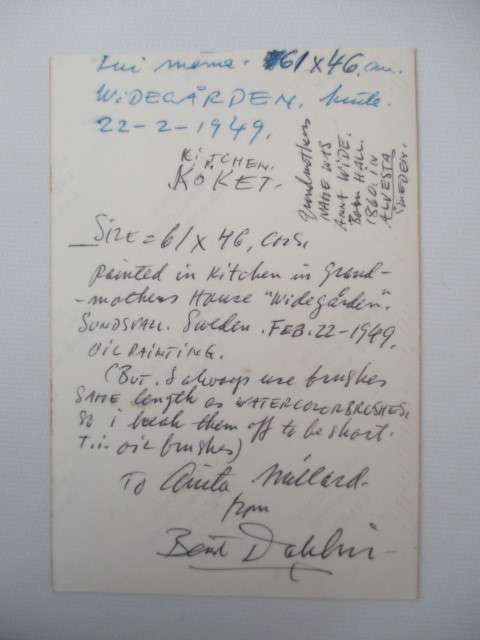 61 x 46. cm.
WiDEGÅRDEN.
22-2-1949.
KiTCHEN.
KÖKET.
Grandmothers
NAME WAS
ANNA WiDE.
BORN
1860. iN
ALVESTA
SWEDEN.
SiZE = 61 x 46, cms.
painted in kitchen in Grand-
-mothers House "Widegården".
SUNDSVALL. Sweden. FEB. 22-1949.
OiL PAiNTiNG.
(But. I always use brushes
SAME length as WATERCOLORBRUSHES.
so i break them off to be short.
T.i. oil brushes)
To Anita Millard.
from
Dahlin